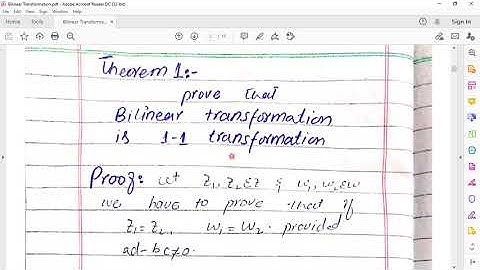 Bilinear Transformation.pdf - Adobe Acrobat Reader DC (32-bit)
File Edit View Sign Window Help
Home Tools Bilinear Transforma...
Sign In
Theorem 1:-
prove that
Bilinear transformation
is 1-1 transformation
Proof: let Z₁, Z₂ ∈ Z & w₁, w₂ ∈ w
we have to prove that if
Z₁ = Z₂, W₁ = W₂. provided
ad - bc ≠ 0.